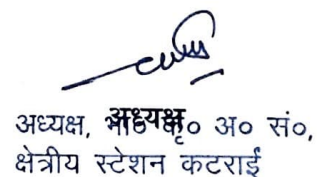 अध्यक्ष
अध्यक्ष, भा० कृ० अ० सं०,
क्षेत्रीय स्टेशन कटराई